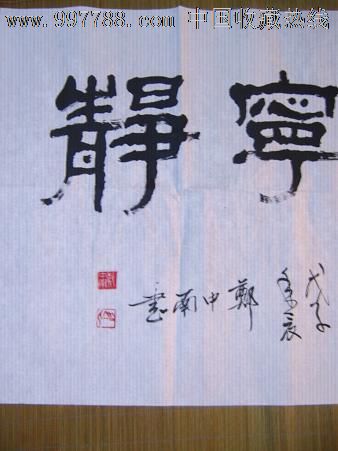 www.997788.com 中国收藏热线
寧靜
戊子
鄭中南書